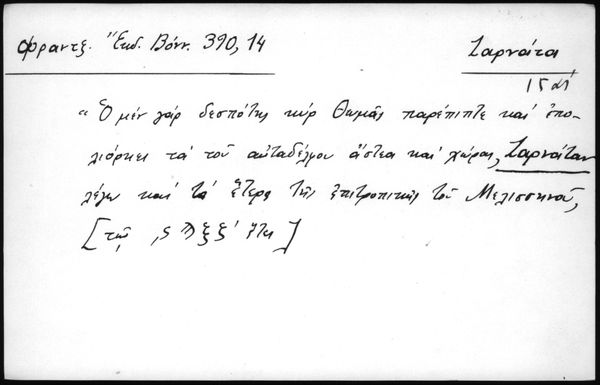 Φραντζ. Ἔκδ. Βόνν. 390, 14
Ζαρνάτα
15 αἰ
"Ὁ μέν γάρ δεσπότης κύρ Θωμᾶς παρέπιπτε καί ἐπο-
λιόρκει τά τοῦ αὐταδέλφου ἄστεα καί χώρας, Ζαρνάταν
λέγω καί τά ἕτερα τῆς ἐπιτροπικῆς τοῦ Μελισσηνοῦ,
[τῷ ,ςϠξξ' ἔτει]